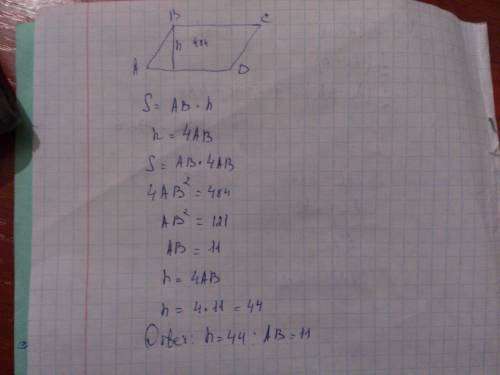 B C
h 484
A D
S = AB · h
h = 4AB
S = AB · 4AB
4AB² = 484
AB² = 121
AB = 11
h = 4AB
h = 4 · 11 = 44
Ответ: h = 44; AB = 11